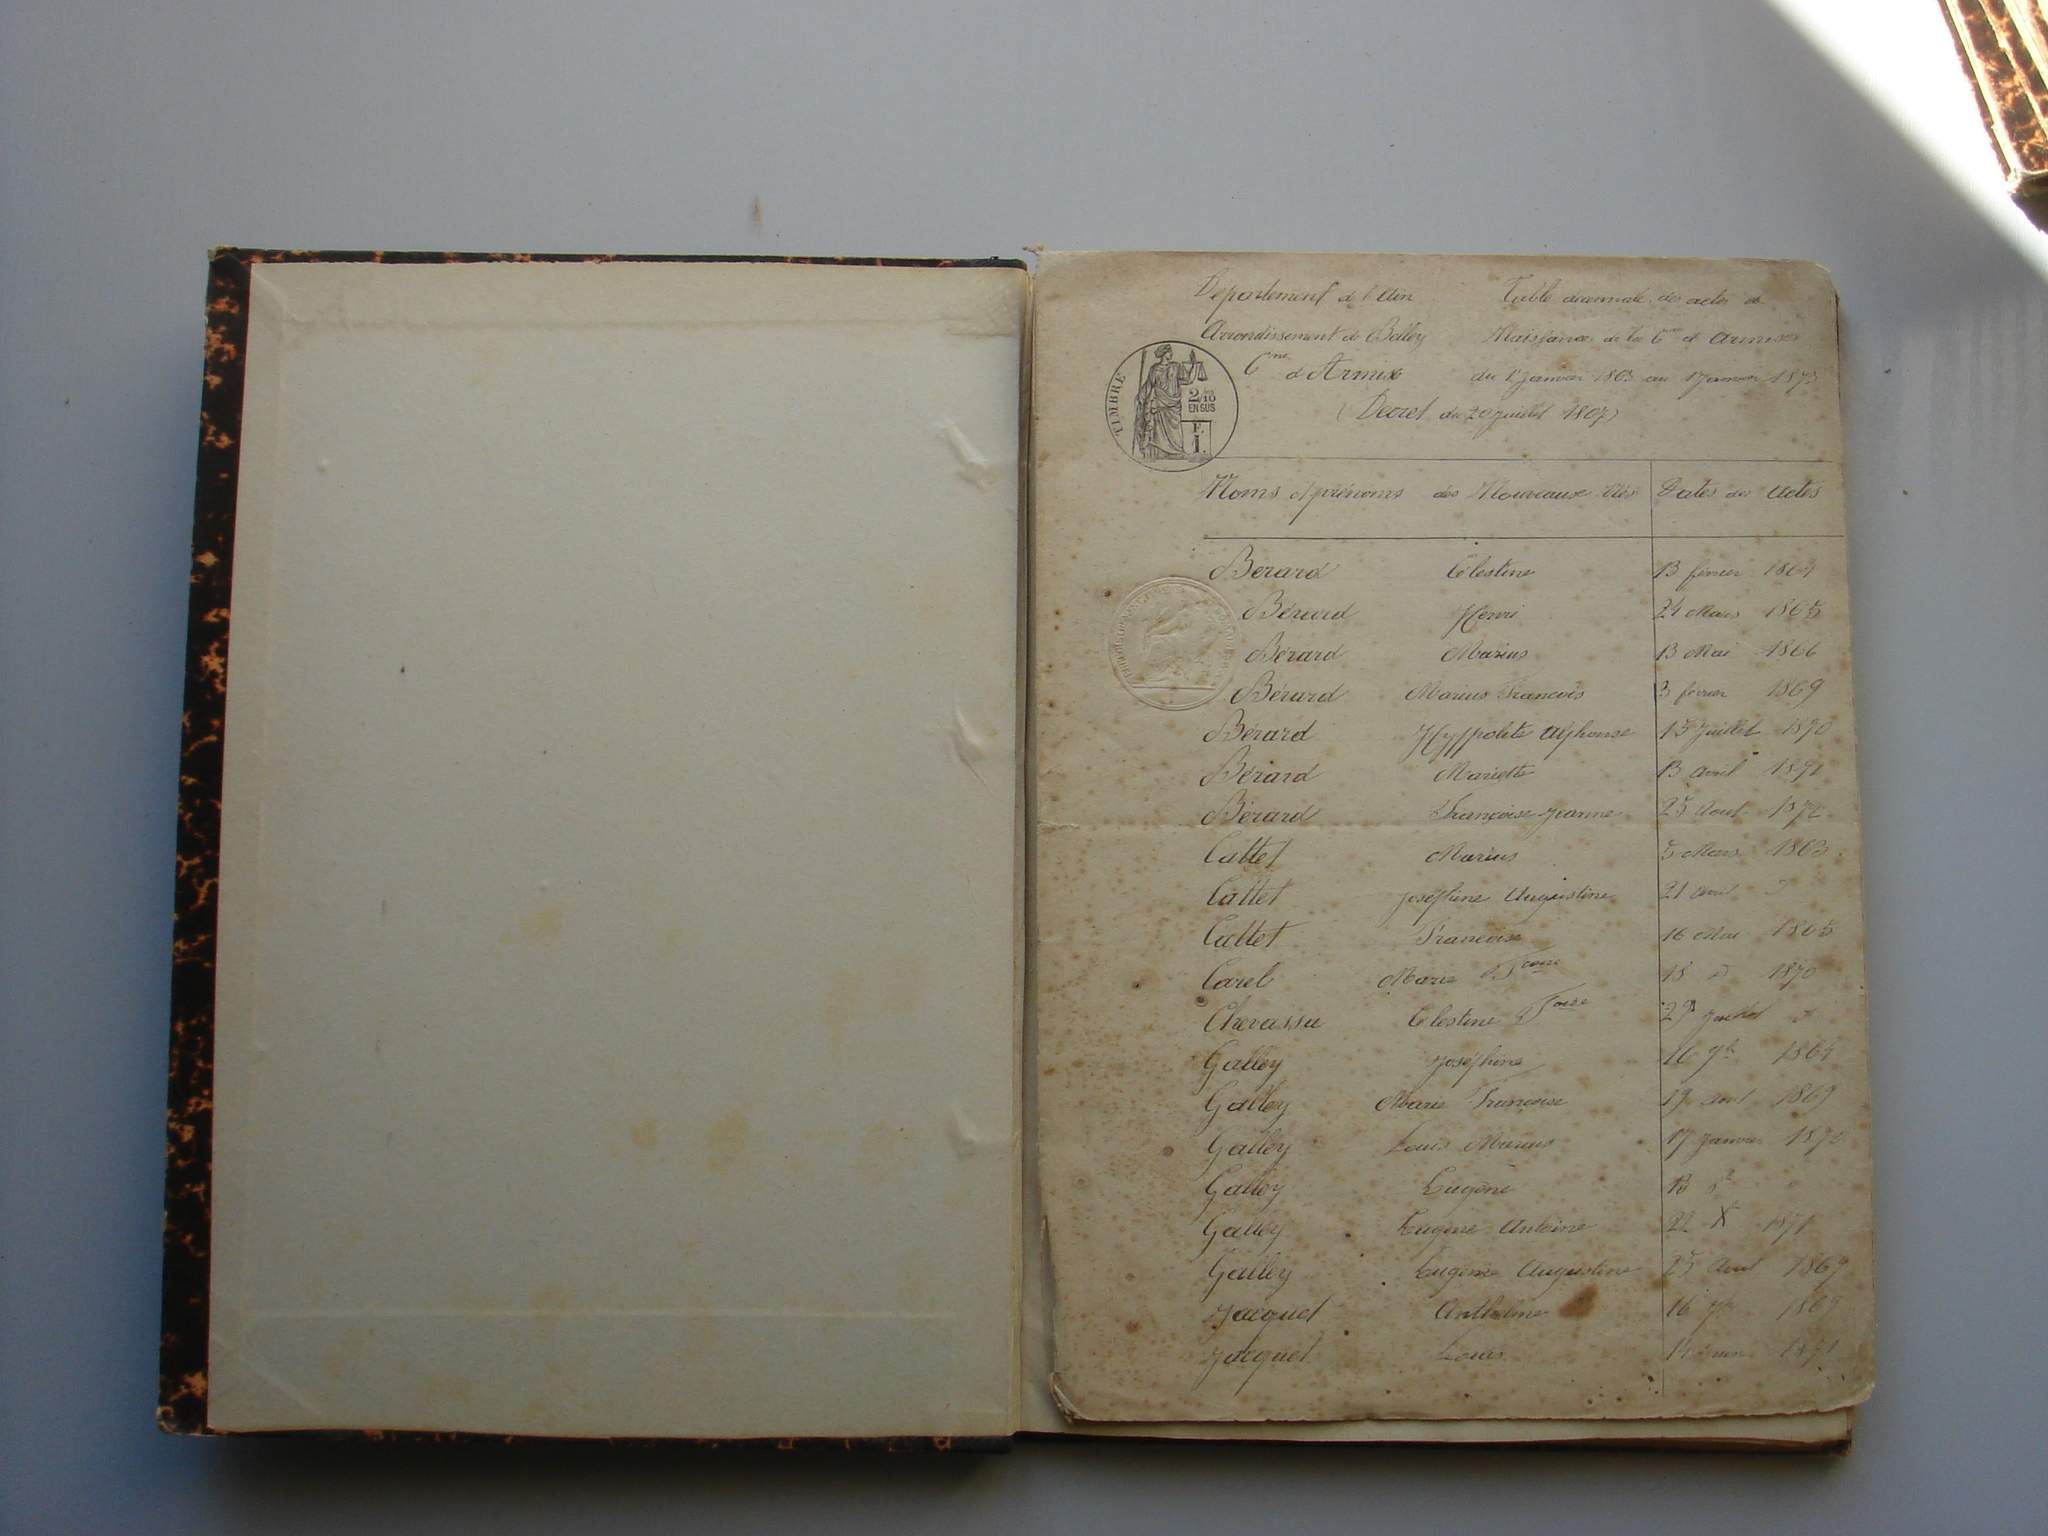 Département de l'Ain Table décennale des actes de
Arrondissement de Belley Naissance de la Cne d'Armix
Cne d'Armix du 1er Janvier 1863 au 1er Janvier 1873
(Décret du 20 Juillet 1807)
TIMBRE
2/10
EN SUS
F.
1.
Noms et prénoms des Nouveaux Nés Dates des Actes
Bérard Célestine 13 février 1864
Bérard Henri 24 Mars 1865
Bérard Marius 13 Mai 1866
Bérard Marius François 3 février 1869
Bérard Hyppolite Alphonse 15 Juillet 1870
Bérard Mariette 13 avril 1871
Bérard Françoise Jeanne 25 Aout 1872
Cattet Marius 5 Mars 1863
Cattet Joséphine Augustine 21 avril d
Cattet Francoise 16 Mai 1865
Carel Marie Fcoise 18 d 1870
Chevassu Célestine Fcoise Juillet d
Galley Joséphine 16 9b 1864
Galley Marie Françoise 19 avril 1869
Galley Louis Marius 17 Janvier 1870
Galley Eugène 13
Galley Eugène Antoine 22 X 1871
Galley Eugénie Augustine 25 Avril 1869
Jacquet Anthelme 16 1869
Jacquet Louis Juin 1871